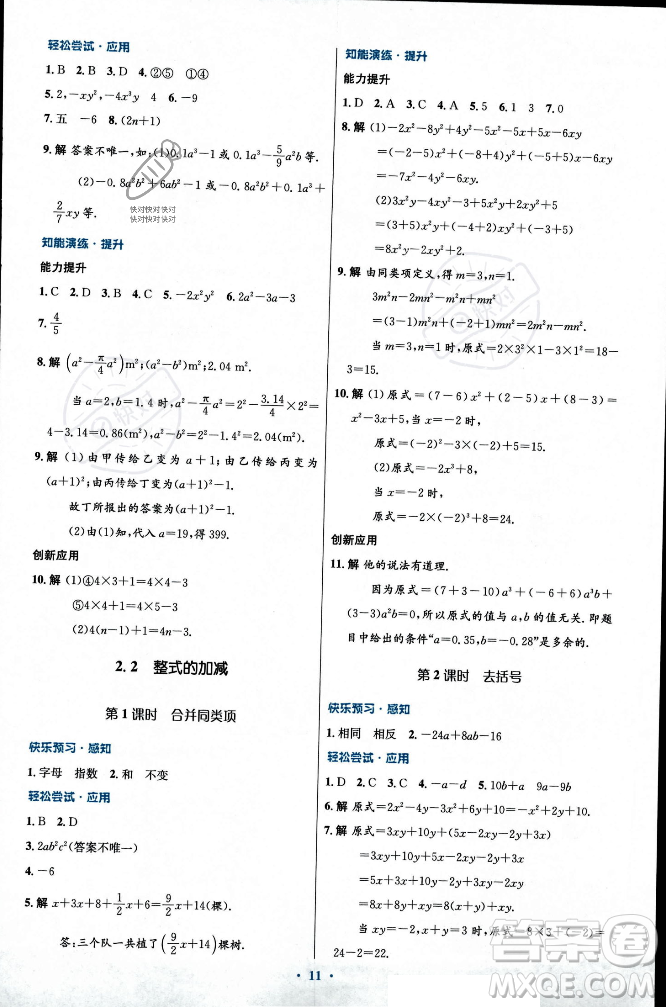 轻松尝试·应用
1. B 2. B 3. D 4. ②⑤ ①④
5. 2, -xy², -4x³y 4 6. -9
7. 五 -6 8. (2n+1)
9. 解 答案不唯一,如:(1)0.1a³-1或0.1a³-5/9a²b等.
(2)-0.8a²b²+6a³-1或-0.8a²b²+3a+
2/7xy等.
快对快对快对
快对快对快对
知能演练·提升
能力提升
1. C 2. D 3. A 4. C 5. -2x²y² 6. 2a³-a-3
7. 4/5
8. 解 (a²-π/4a²)m²;(a²-b²)m²;2.04 m².
当a=2,b=1.4时,a²-π/4a²=2²-3.14/4×2²=
4-3.14=0.86(m²),a²-b²=2.04(m²).
9. 解 (1)由甲传给乙变为a+1;由乙传给丙变为
(a+1)²;由丙传给丁变为(a+1)²-1.
故丁所报出的答案为(a+1)²-1.
(2)由(1)知,代入a=19,得399.
创新应用
10. 解 (1)④4×3+1=4×4-3
⑤4×4+1=4×5-3
(2)4(n-1)+1=4n-3
2.2 整式的加减
第1课时 合并同类项
快乐预习·感知
1. 字母 指数 2. 和 不变
轻松尝试·应用
1. B 2. D
3. 2ab²c²(答案不唯一)
4. -6
5. 解 x+3+x+8+1/2x+3=(9/2x+14)棵.
答:三个队一共植了(9/2x+14)棵树.
知能演练·提升
能力提升
1. D 2. A 3. C 4. A 5. 5 6. 1 3 7. 0
8. 解 (1)-2x²-8y²+4y²-5x²-5x+5x-6xy
=(-2-5)x²+(-8+4)y²+(-5+5)x-6xy
=-7x²-4y²-6xy.
(2)3x²y-4xy²-3+5x²y+2xy²+5
=(3+5)x²y+(-4+2)xy²+(-3+5)
=8x²y-2xy²+2.
9. 解 由同类项定义,得m=3,n=1.
3m²n-2mn²-m²n+mn²
=(3-1)m²n+(-2+1)mn²
=2m²n-mn².
当m=3,n=1时,原式=2×3²×1-3×1²=18-
3=15.
10. 解 (1)原式=(7-6)x²+(2-5)x+(8-3)=
x²-3x+5,
当x=-2时,
原式=(-2)²-3×(-2)+5=15.
(2)原式=(5-7)x³+(4-4)y+(9-1)=
-2x³+8.
当x=-2时,
原式=-2×(-2)³+8=24.
创新应用
11. 解 他的说法有道理.
因为原式=(7+3-10)a³+(-6+6)a³b+
(3-3)a²b=0,所以原式的值与a,b的值无关.即题
目中给出的条件“a=0.35,b=-0.28”是多余的.
第2课时 去括号
快乐预习·感知
1. 相同 相反 2. -24a+8ab-16
轻松尝试·应用
1. D 2. D 3. C 4. -a-d 5. 10a+2b 9a-9b
6. 解 原式=2x²-4y-3x²+6y=-x²+2y.
7. 解 原式=3xy+10y+(5x-2xy-2y+3x)
=3xy+10y+5x-2xy-2y+3x
=3xy-2xy+10y-2y+5x+3x
=xy+8y+8x
=8(x+y)+xy.
当x+y=3,xy=-2时,原式=8×3+(-2)=
24-2=22.
11
答案圈
MXQE.COM